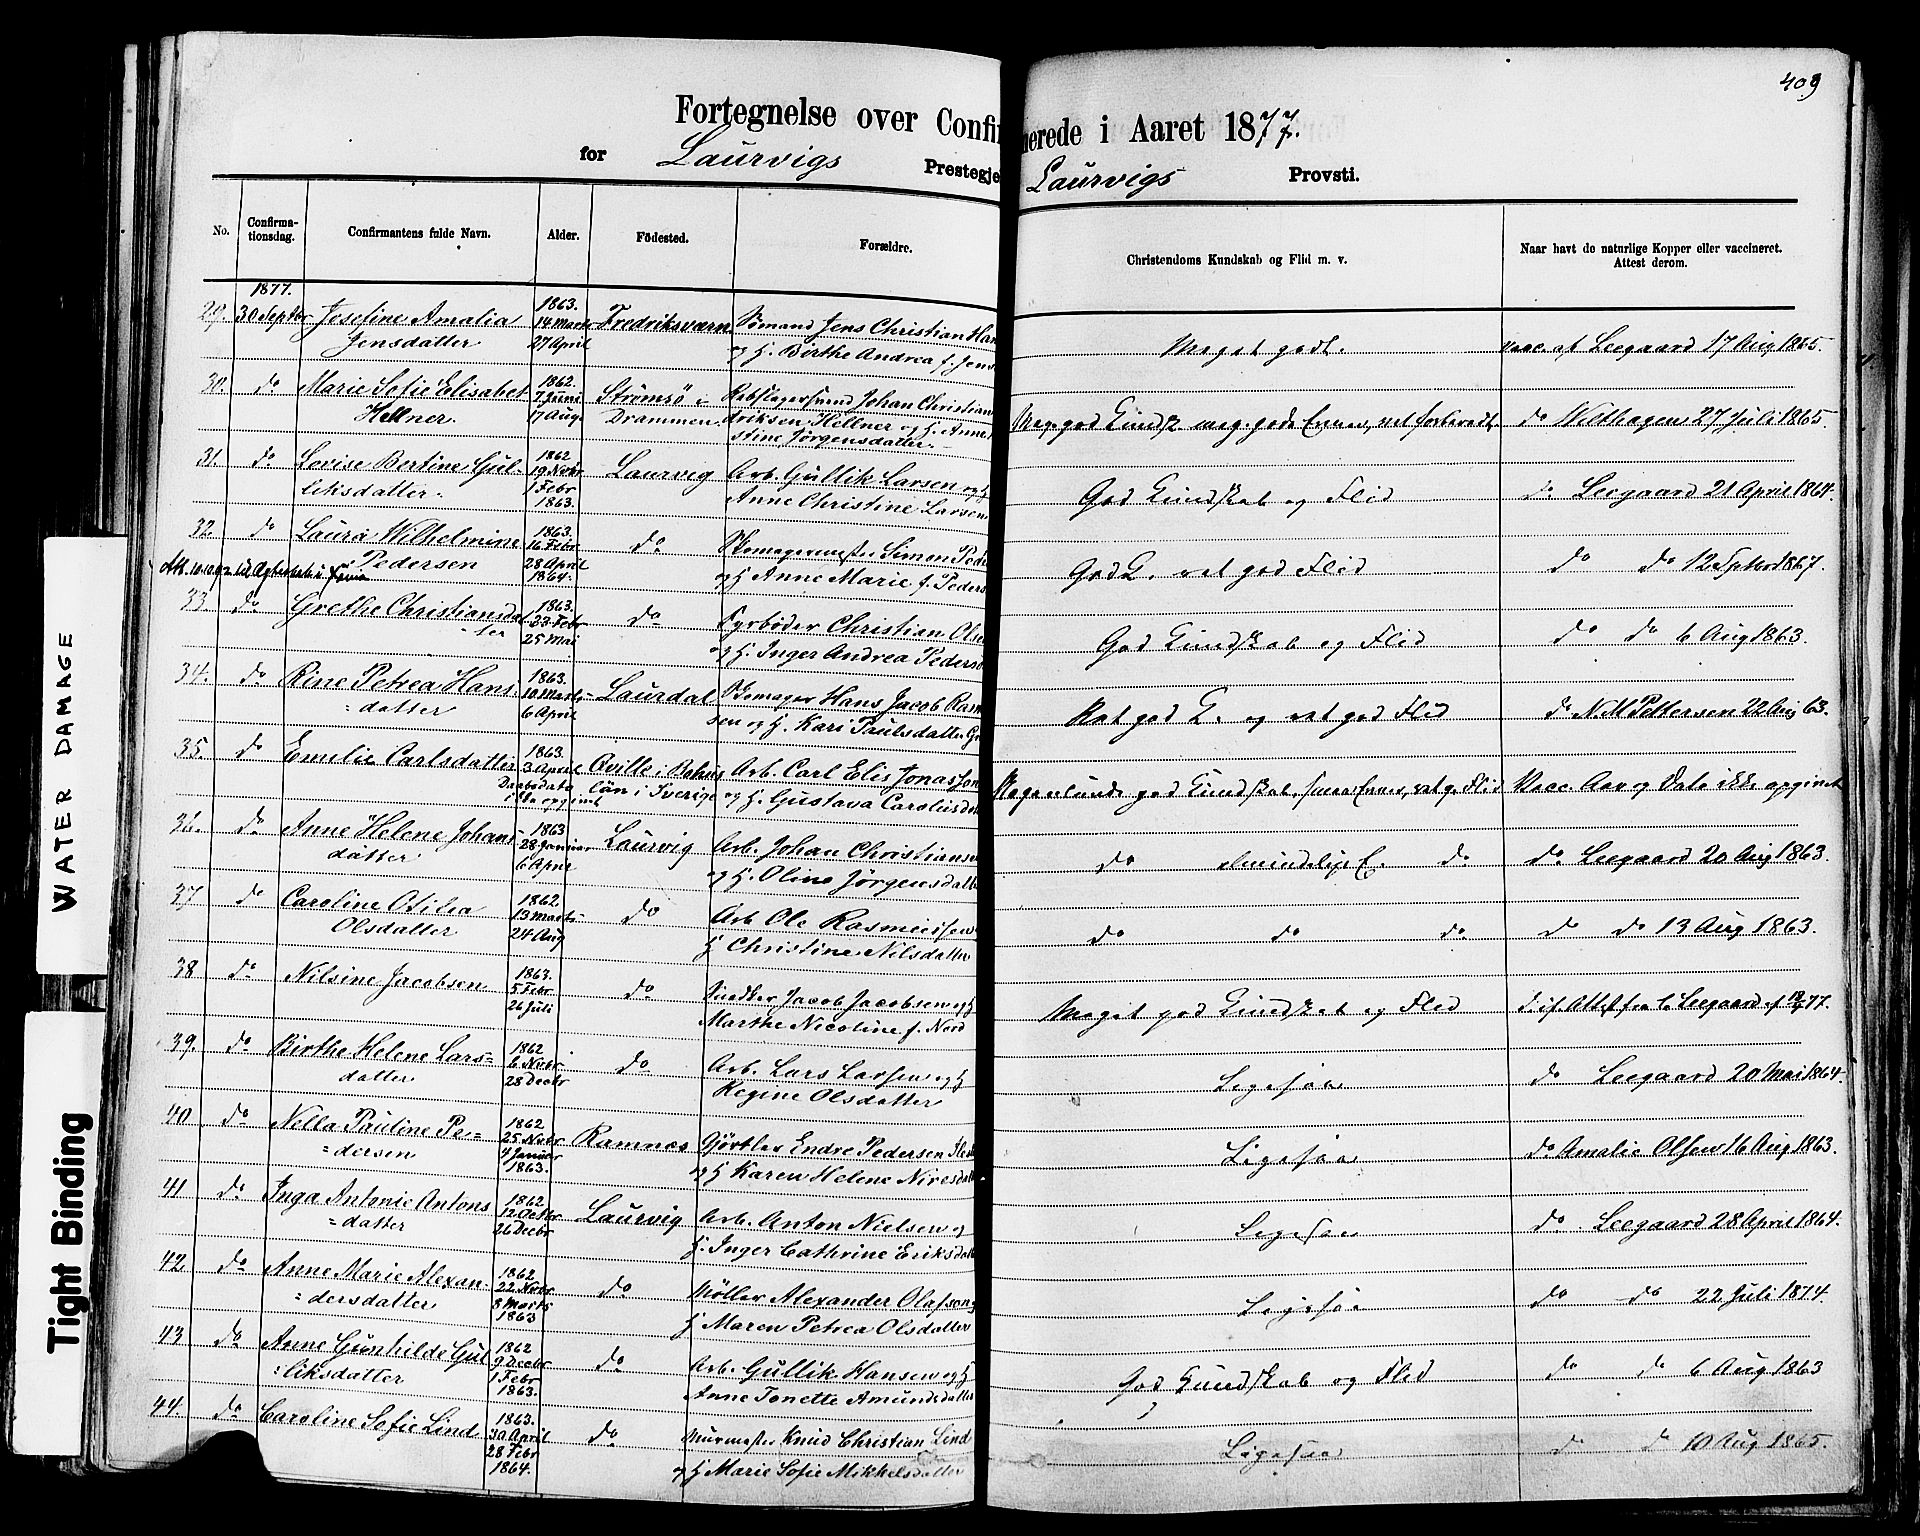 409
Fortegnelse over Confir
merede i Aaret 1877.
for Laurvigs Prestegje
Laurvigs Provsti.
No.
Confirma-
tionsdag.
Confirmantens fulde Navn.
Alder.
Födested.
Forældre.
Christendoms Kundskab og Flid m. v.
Naar havt de naturlige Kopper eller vaccineret.
Attest derom.
1877.
29. 30 Septbr Josefine Amalia
Jensdatter
1863.
14 Marts
27 April
Fredriksværn
Sømand Jens Christian Han
og H. Birthe Andrea f. Jens
Meget godt.
vacc. af Leegaard 17 Aug 1865.
30. do Marie Sofie Elisabet
Hellner.
1862.
7 Juni
17 Aug.
Strømsö i
Drammen
Rebslagersvend Johan Christian
driksen Hellner og H. Anne
stine Jørgensdatter.
do Wilthagen 27 Juli 1865.
31. do Lovise Bertine Gul-
liksdatter.
1862
19 Novbr
1 Febr
1863.
Laurvig
Arb. Gullik Larsen og H
Anne Christine Larsen
God Kundskab og Flid
do Leegaard 21 April 1864.
32. do Laura Wilhelmine
Pedersen
1863.
16 Febr
28 April
1864.
do
Skomagermester Simon Peder
og H Anne Marie f. Peders
God K. vel god Flid
do do 12 Septbr 1867.
33. do Grethe Christiansda
ter
1863.
23 Febr
25 Mai
do
Fyrbøder Christian Olse
og H. Inger Andrea Peders
God Kundskab og Flid
do do 6 Aug 1863.
34. do Rine Petrea Hans
=datter
1863.
10 Marts
6 April
Laurdal
Skomager Hans Jacob Rasm
sen og H. Kari Paulsdatter
vel god K. og vel god Flid
do N. M. Pettersen 22 Aug 63.
35. do Emelie Carlsdatter
1863.
3 April
Daabsdato
ikke opgivet
Qville i Bohus
län i Sverige
Arb. Carl Elis Jonasson
og H. Gustava Carolusda
Nogenlunde god Kundskab, smaa Evner, vel g. Flid
Vacc. Aar og Dato ikke opgivet
36. do Anne Helene Johans
datter
1863
28 Januar
6 April
Laurvig
Arb. Johan Christianse
og H. Oline Jörgensdatte
do almindelige E. do
do Leegaard 20 Aug 1863.
37 do Caroline Otilia
Olsdatter
1862.
13 Marts
24 Aug
do
Arb Ole Rasmussen
H Christine Nilsdatter
do do do
do do 13 Aug 1863.
38 do Nilsine Jacobsen
1863.
5 Febr
26 Juli
do
Snedker Jacob Jacobsen og H
Marthe Nicoline f. Nord
Meget god Kundskab og Flid
39. do Birthe Helene Lars=
datter
1862
6 Novbr
28 Decbr
do
Arb. Lars Larsen og H
Regine Olsdatter
Ligesaa
do Leegaard 20 Mai 1864.
40 do Nella Pauline Pe-
=dersen
1862
25 Novbr
7 Januar
1863.
Ramnæs
Gjörtler Endre Pedersen
og H Karen Helene
Ligesaa
do Amalie Olsen 16 Aug 1863.
41 do Inga Antonie Antons
=datter
1862
12 Octbr
26 Decbr
Laurvig
Arb. Anton Nielsen og
H. Inger Cathrine Eriksdatt
Ligesaa
do Leegaard 28 April 1864.
42 do Anne Marie Alexan-
=dersdatter
1862
22 Novbr
8 Marts
1863
do
Møller Alexander Olafsen
H Maren Petrea Olsdatter
Ligesaa
do do 22 Juli 1874.
43 do Anne Gunhilde Gul
=liksdatter
1862
9 Decbr
1 Febr
1863.
do
Arb. Gullik Hansen og H
Anne Tonette Amundsdatter
God Kundskab og Flid
do do 6 Aug 1863
44. do Caroline Sofie Lind
1863.
30 April
28 Febr
1864.
do
Murmester Knud Christian Lind
og H Marie Sofie Mikkelsdatter
Ligesaa
do do 10 Aug 1865.
WATER DAMAGE
Tight Binding